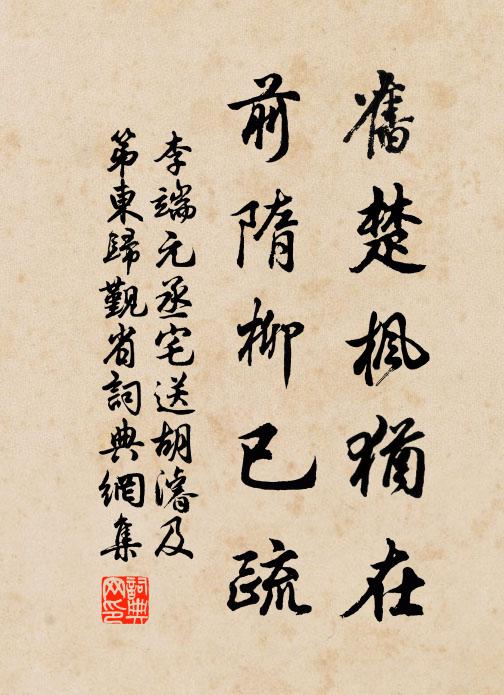 舊楚楓猶在
前隋柳已疏
李端元丞宅送胡濬及
第東歸覲省詞典網集
詞典网印